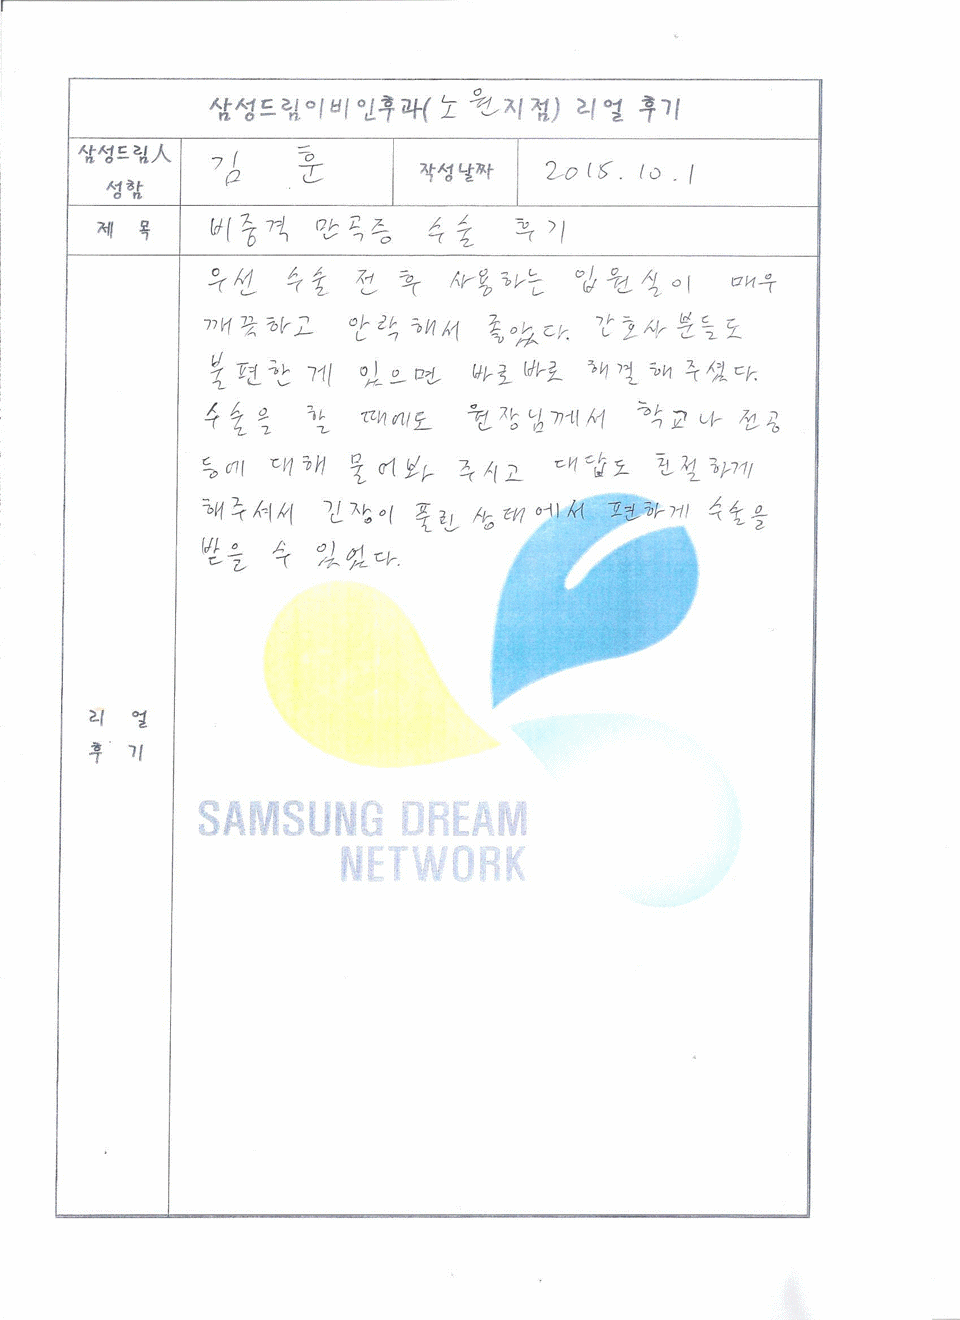 삼성드림이비인후과(노원지점) 리얼 후기
삼성드림人 성함
김 훈
작성날짜
2015.10.1
제 목
비중격 만곡증 수술 후기
리 얼 후 기
우선 수술 전 후 사용하는 입원실이 매우
깨끗하고 안락해서 좋았다. 간호사분들도
불편한 게 있으면 바로바로 해결해주셨다.
수술을 할 때에도 원장님께서 학교나 전공
등에 대해 물어봐 주시고 대답도 친절하게
해주셔서 긴장이 풀린 상태에서 편하게 수술을
받을 수 있었다.
SAMSUNG DREAM
NETWORK